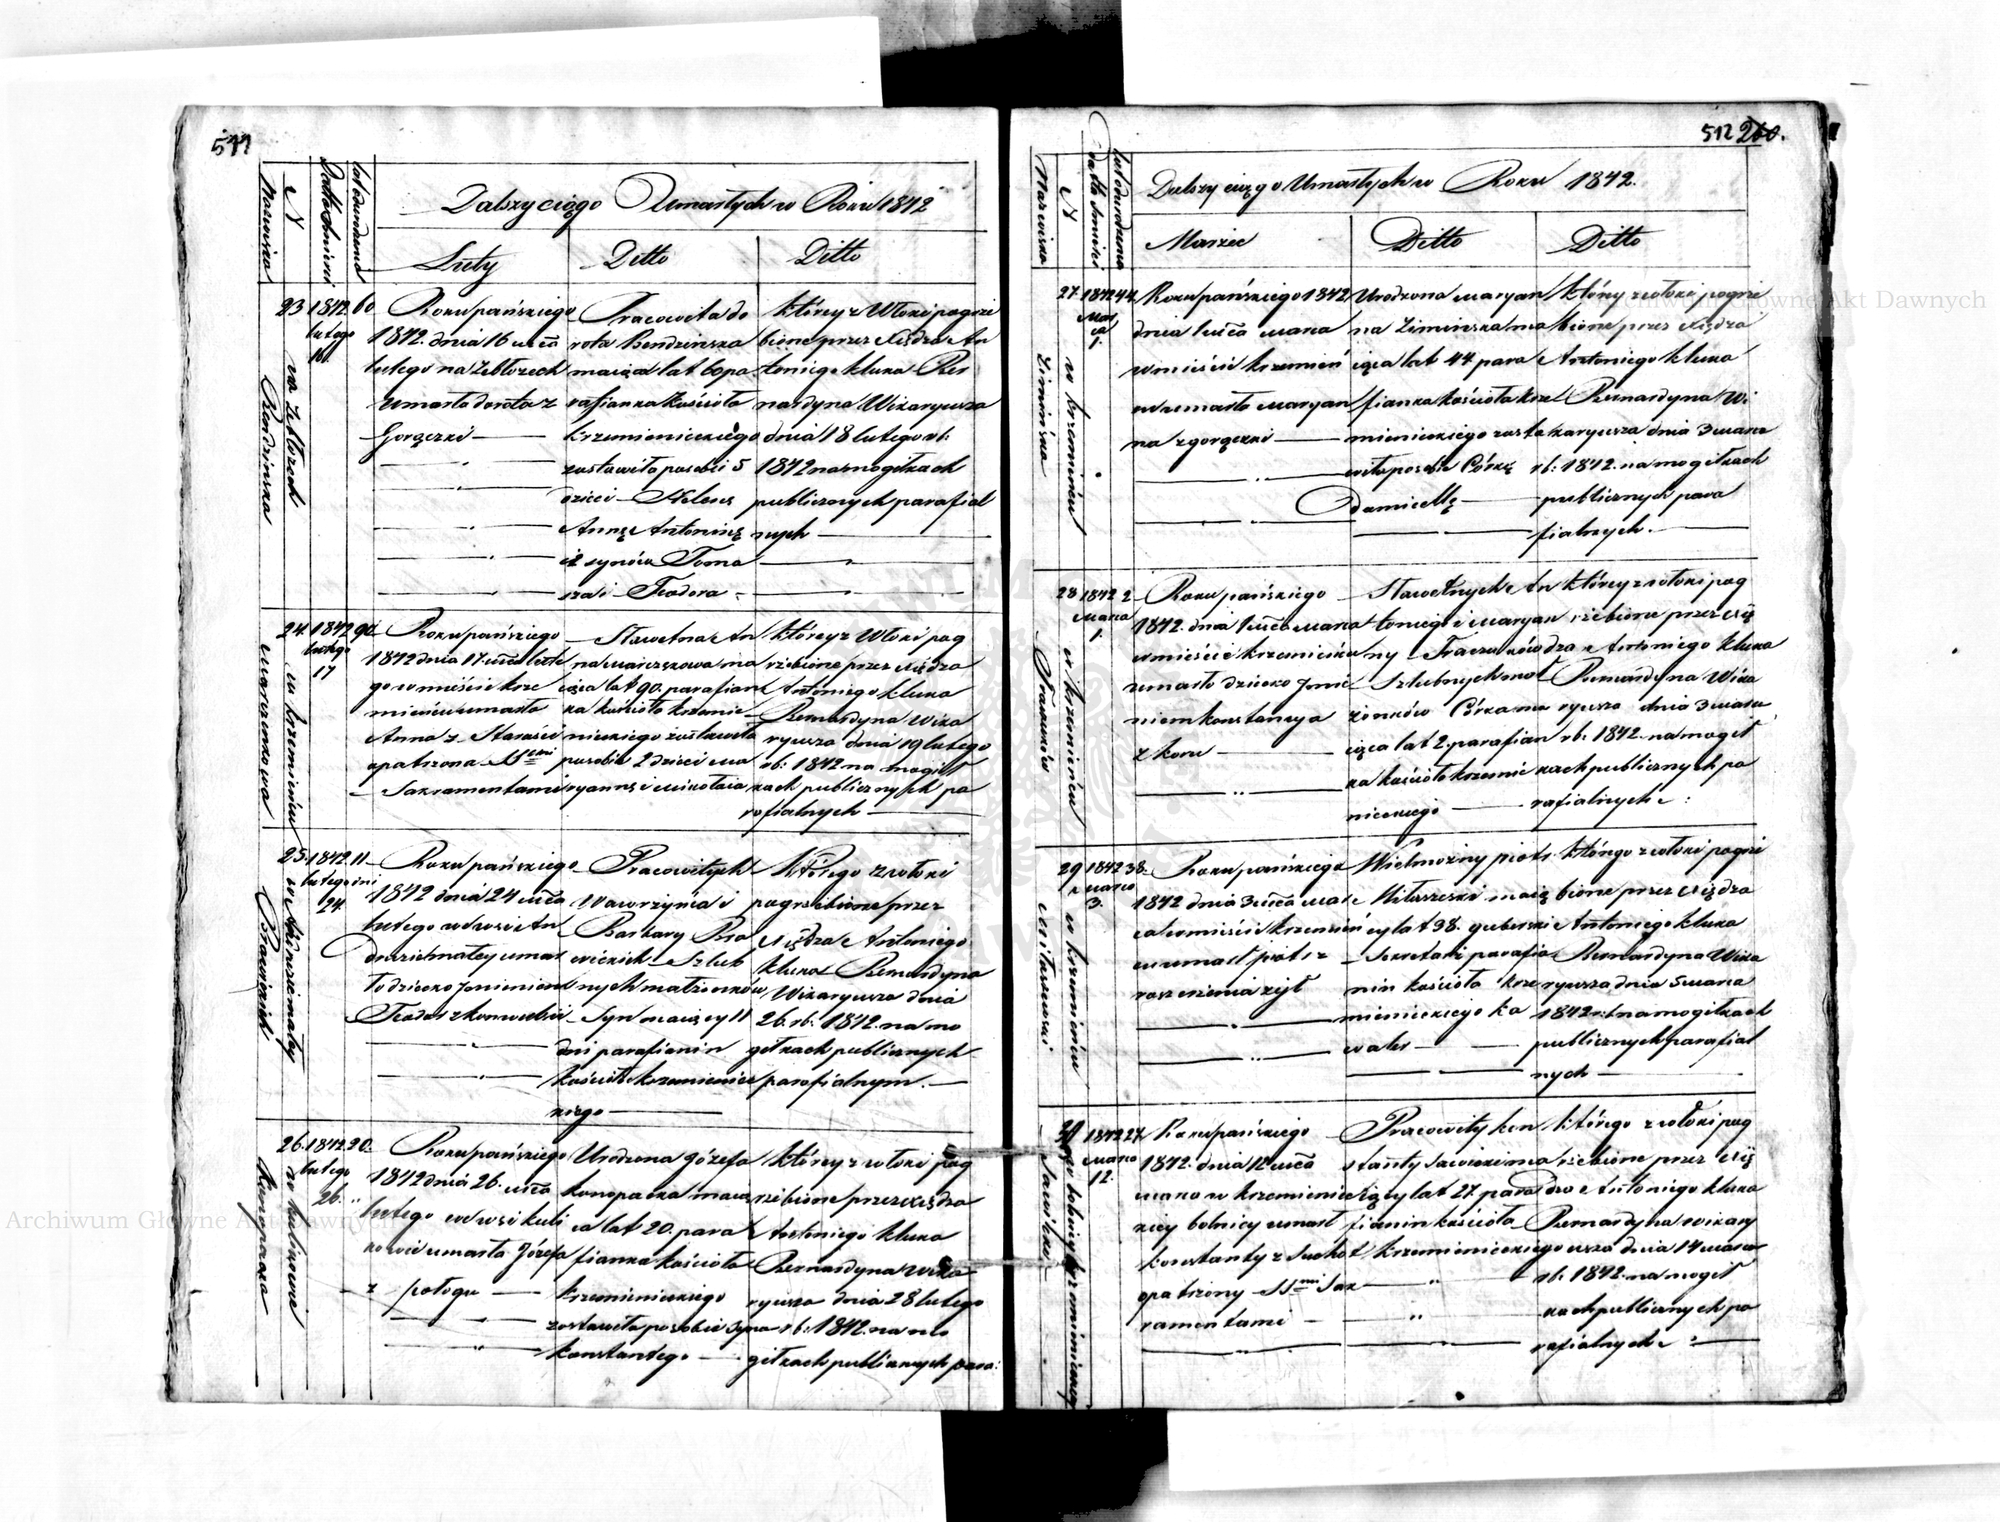 511
Dalszy ciąg o Umarłych w Roku 1842
Nazwisko
N
Data śmierci
Luty
Ditto
Ditto
23
1842
lutego
16.
60
na Zebłozach
Roku pańskiego
1842. dnia 16 mca
lutego na Zebłozach
umarła Dorota z
Gorączki
Pracowita do
rota Bendzinska
maiąca lat 60 pa
rafianka kościoła
krzemienieckiego
zostawiła po sobie 5
dzieci Helenę
Annę Antoninę
i 2 synów Toma
sza i Teodora
której zwłoki pogrze
bione przez Xiędza An
toniego Kluka Ber
nardyna Wikaryusza
dnia 18 lutego rb:
1842 na mogiłkach
publicznych parafial
nych
24.
1842
lutego
17
90.
w Krzemieńcu
Marczenkowa
Roku pańskiego
1842 dnia 17 mca lute
go w mieście krze
mieńcu umarła
Anna z Starości
opatrzona SSemi
Sakramentami
Sławetna An
na Marczenkowa ma
iąca lat 90. parafian
ka kościoła krzemie
nieckiego zostawiła
po sobie 2 dzieci Ma
ryannę i Mikołaia
której zwłoki pog
rzebione przez Xiędza
Antoniego Kluka
Bernardyna Wika
ryusza dnia 19 lutego
rb: 1842 na mogił
kach publicznych pa
rafialnych
25.
1842
lutego
24.
11
dni
Roku pańskiego
1842 dnia 24 mca
lutego we wsi An
druzie małey umar
ło dziecko Imieniem
Teodor z konwulsii
Pracowitych
Wawrzyńca i
Barbary Bra
wickich Szlub
nych małżonków
Syn maiący 11
dni parafianin
kościoła krzemieniec
kiego
Którego zwłoki
pogrzebione przez
Xiędza Antoniego
Kluka Bernardyna
Wikaryusza dnia
26. rb: 1842. na mo
giłkach publicznych
parafialnym.
26.
1842
lutego
26.
20.
Konopacka
Roku pańskiego
1842 dnia 26. mca
lutego we wsi Kuli
kowie umarła Józefa
z połogu
Urodzona Józefa
Konopacka maią
ca lat 20. para
fianka kościoła
Krzemienieckiego
zostawiła po sobie syna
Konstantego
której zwłoki pog
rzebione przez Xiędza
Antoniego Kluka
Bernardyna Wika
ryusza dnia 28 lutego
rb: 1842. na mo
giłkach publicznych para:
512 260.
Dalszy ciąg o Umarłych w Roku 1842.
Nazwisko
N
Data śmierci
Marzec
Ditto
Ditto
27.
1842
Mar
ca
1.
44.
w Krzemieńcu
Zimińska
Roku pańskiego 1842
dnia 1 mca Marca
w mieście Krzemień
cu umarła Maryan
na z gorączki
Urodzona Maryan
na Zimińska ma
iąca lat 44 para
fianka kościoła krze
mienieckiego zosta
wiła po sobie Córkę
Damicellę
której zwłoki pogrze
bione przez Xiędza
Antoniego Kluka
Bernardyna Wi
karyusza dnia 3 Marca
rb: 1842. na mogiłkach
publicznych para
fialnych.
28
1842
Marca
1.
2
w Krzemieńcu
Roku pańskiego
1842. dnia 1 mca Marca
w mieście Krzemieńcu
umarło dziecko Imie
niem Konstancya
z koru
Sławetnych An
toniego i Maryan
ny Traczuków
Szlubnych mał
żonków Córka ma
iąca lat 2. parafian
ka kościoła krzemie
nieckiego
której zwłoki pog
rzebione przez Xię
dza Antoniego Kluka
Bernardyna Wika
ryusza dnia 3 Marca
rb: 1842. na mogił
kach publicznych pa
rafialnych
29
1842
Marca
3.
38.
w Krzemieńcu
Roku pańskiego
1842 dnia 3 mca Mar
ca w mieście Krzemień
cu umarł piotr z
rozszerzenia żył
Wielmożny piotr
Mitaszeski maią
cy lat 38. guberski
Sekretarz parafia
nin kościoła krze
mienieckiego ka
waler
którego zwłoki pogrze
bione przez Xiędza
Antoniego Kluka
Bernardyna Wika
ryusza dnia 5 Marca
1842 r. na mogiłkach
publicznych parafial
nych
1842
Marca
12.
27.
Sawicki
Roku pańskiego
1842. dnia 12 mca
Marca w krzemieniec
kiey bolnicy umarł
Konstanty z Suchot
opatrzony SSmi Sak
ramentami
Pracowity Kon
stanty Sawicki ma
iący lat 27. para
fianin kościoła
krzemienieckiego
którego zwłoki pog
rzebione przez Xię
dza Antoniego Kluka
Bernardyna Wikary
usza dnia 14 Marca
rb: 1842. na mogił
kach publicznych pa
rafialnych
Archiwum Główne Akt Dawnych
Archiwum Główne Akt Dawnych